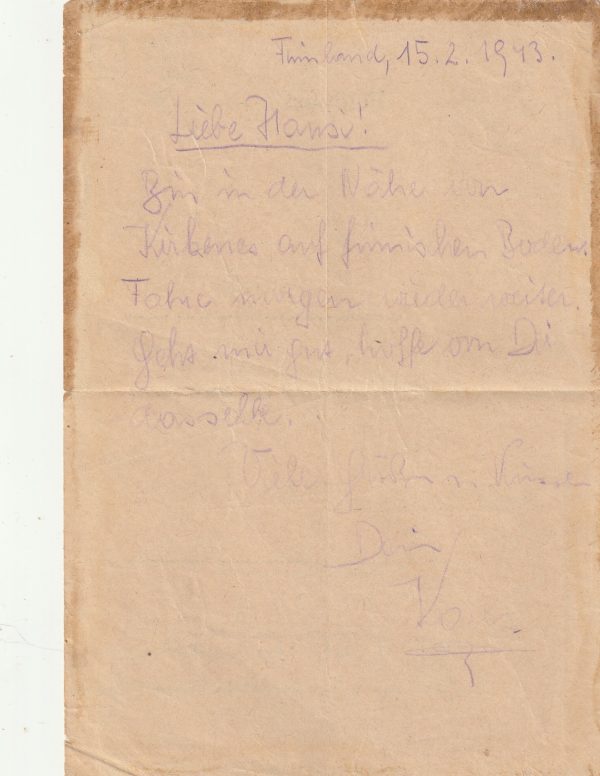 Finnland, 15.2.1943.
Liebe Hansi!
Bin in der Nähe von
Kirkenes auf finnischen Boden.
Fahre morgen wieder weiter.
Geht mir gut, hoffe von Di
dasselbe.
Viele Grüße u. Küsse
Dein